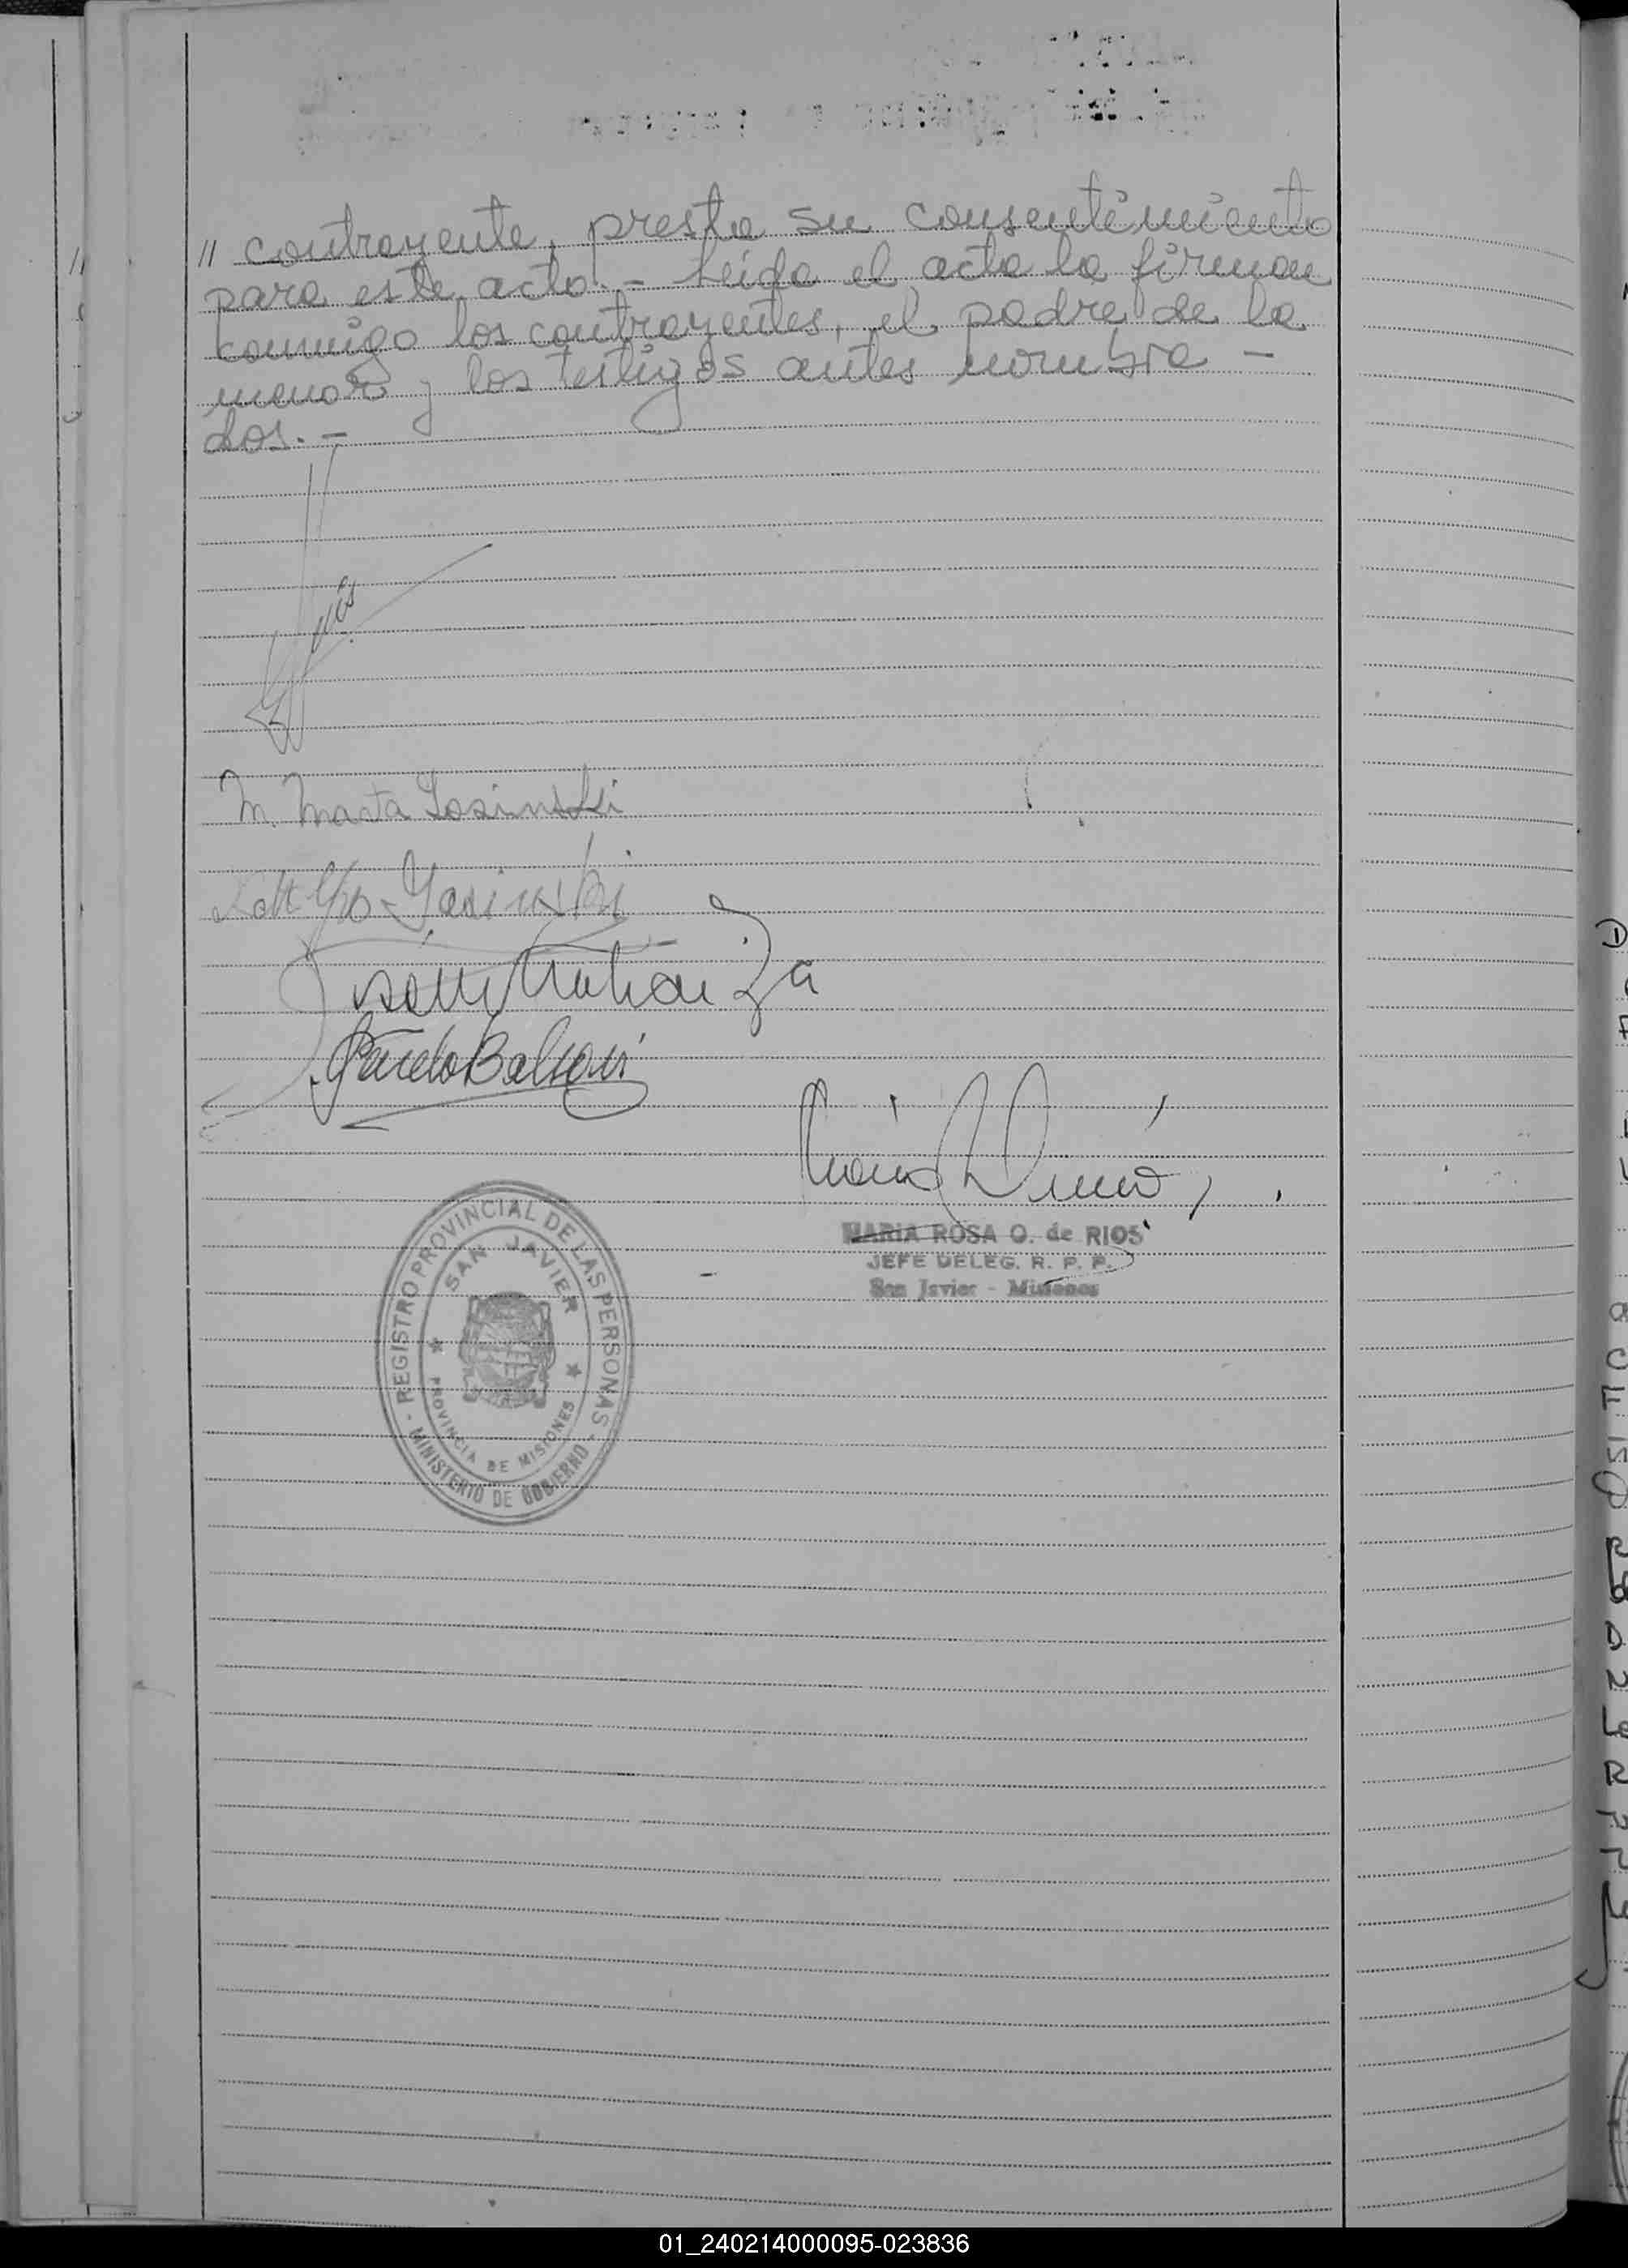 // contrayente, presta su consentimiento
para este acto.- Leida el acta la firman
conmigo los contrayentes, el padre de la
menor y los testigos antes nombra -
dos. -
M. Marta Iasinski
MARIA ROSA O. de RIOS
JEFE DELEG. R. P. P.
San Javier - Misiones
- REGISTRO PROVINCIAL DE LAS PERSONAS -
MINISTERIO DE GOBIERNO
SAN JAVIER
PROVINCIA DE MISIONES
01_240214000095-023836